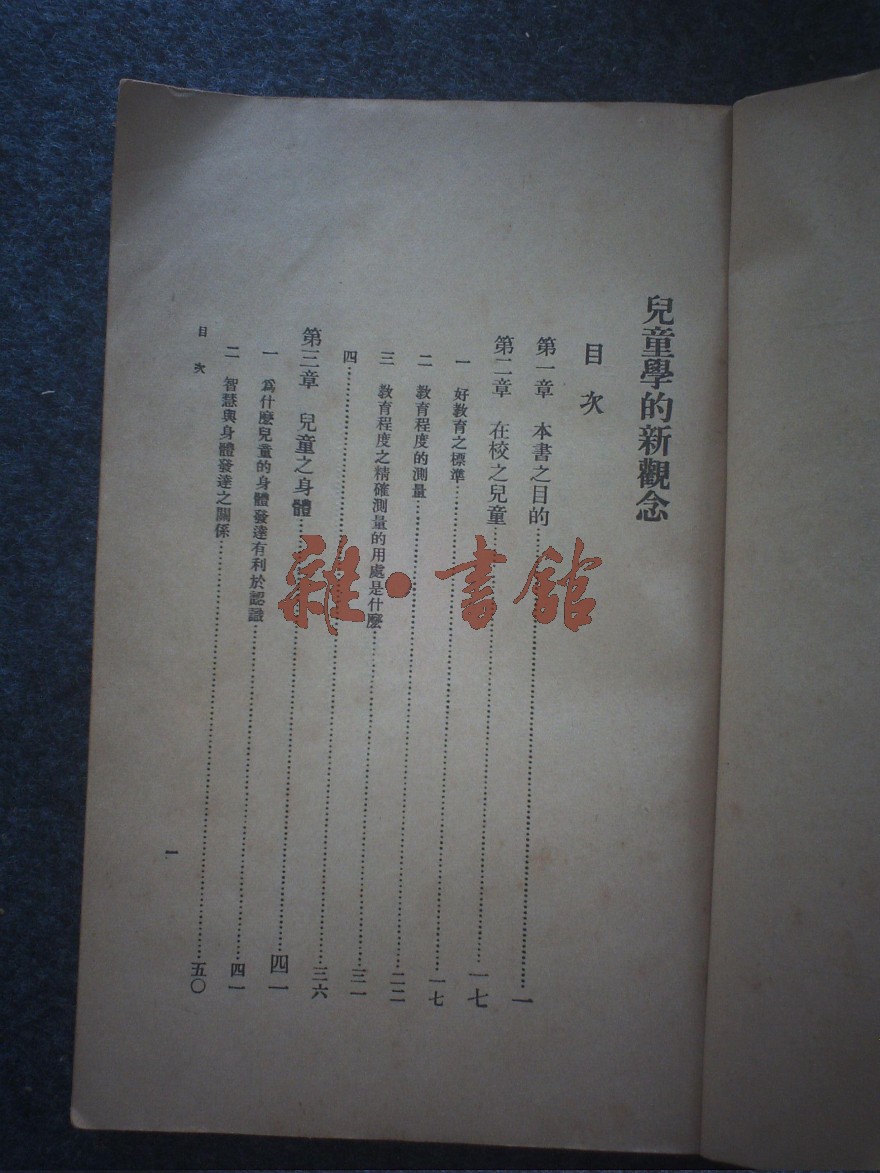 兒童學的新觀念
目次
第一章 本書之目的……一
第二章 在校之兒童……一七
一 好教育之標準……一七
二 教育程度的測量……二二
三 教育程度之精確測量的用處是什麼……三一
四……三六
第三章 兒童之身體……四一
一 爲什麼兒童的身體發達有利於認識……四一
二 智慧與身體發達之關係……五〇
目次
一
雜·書館